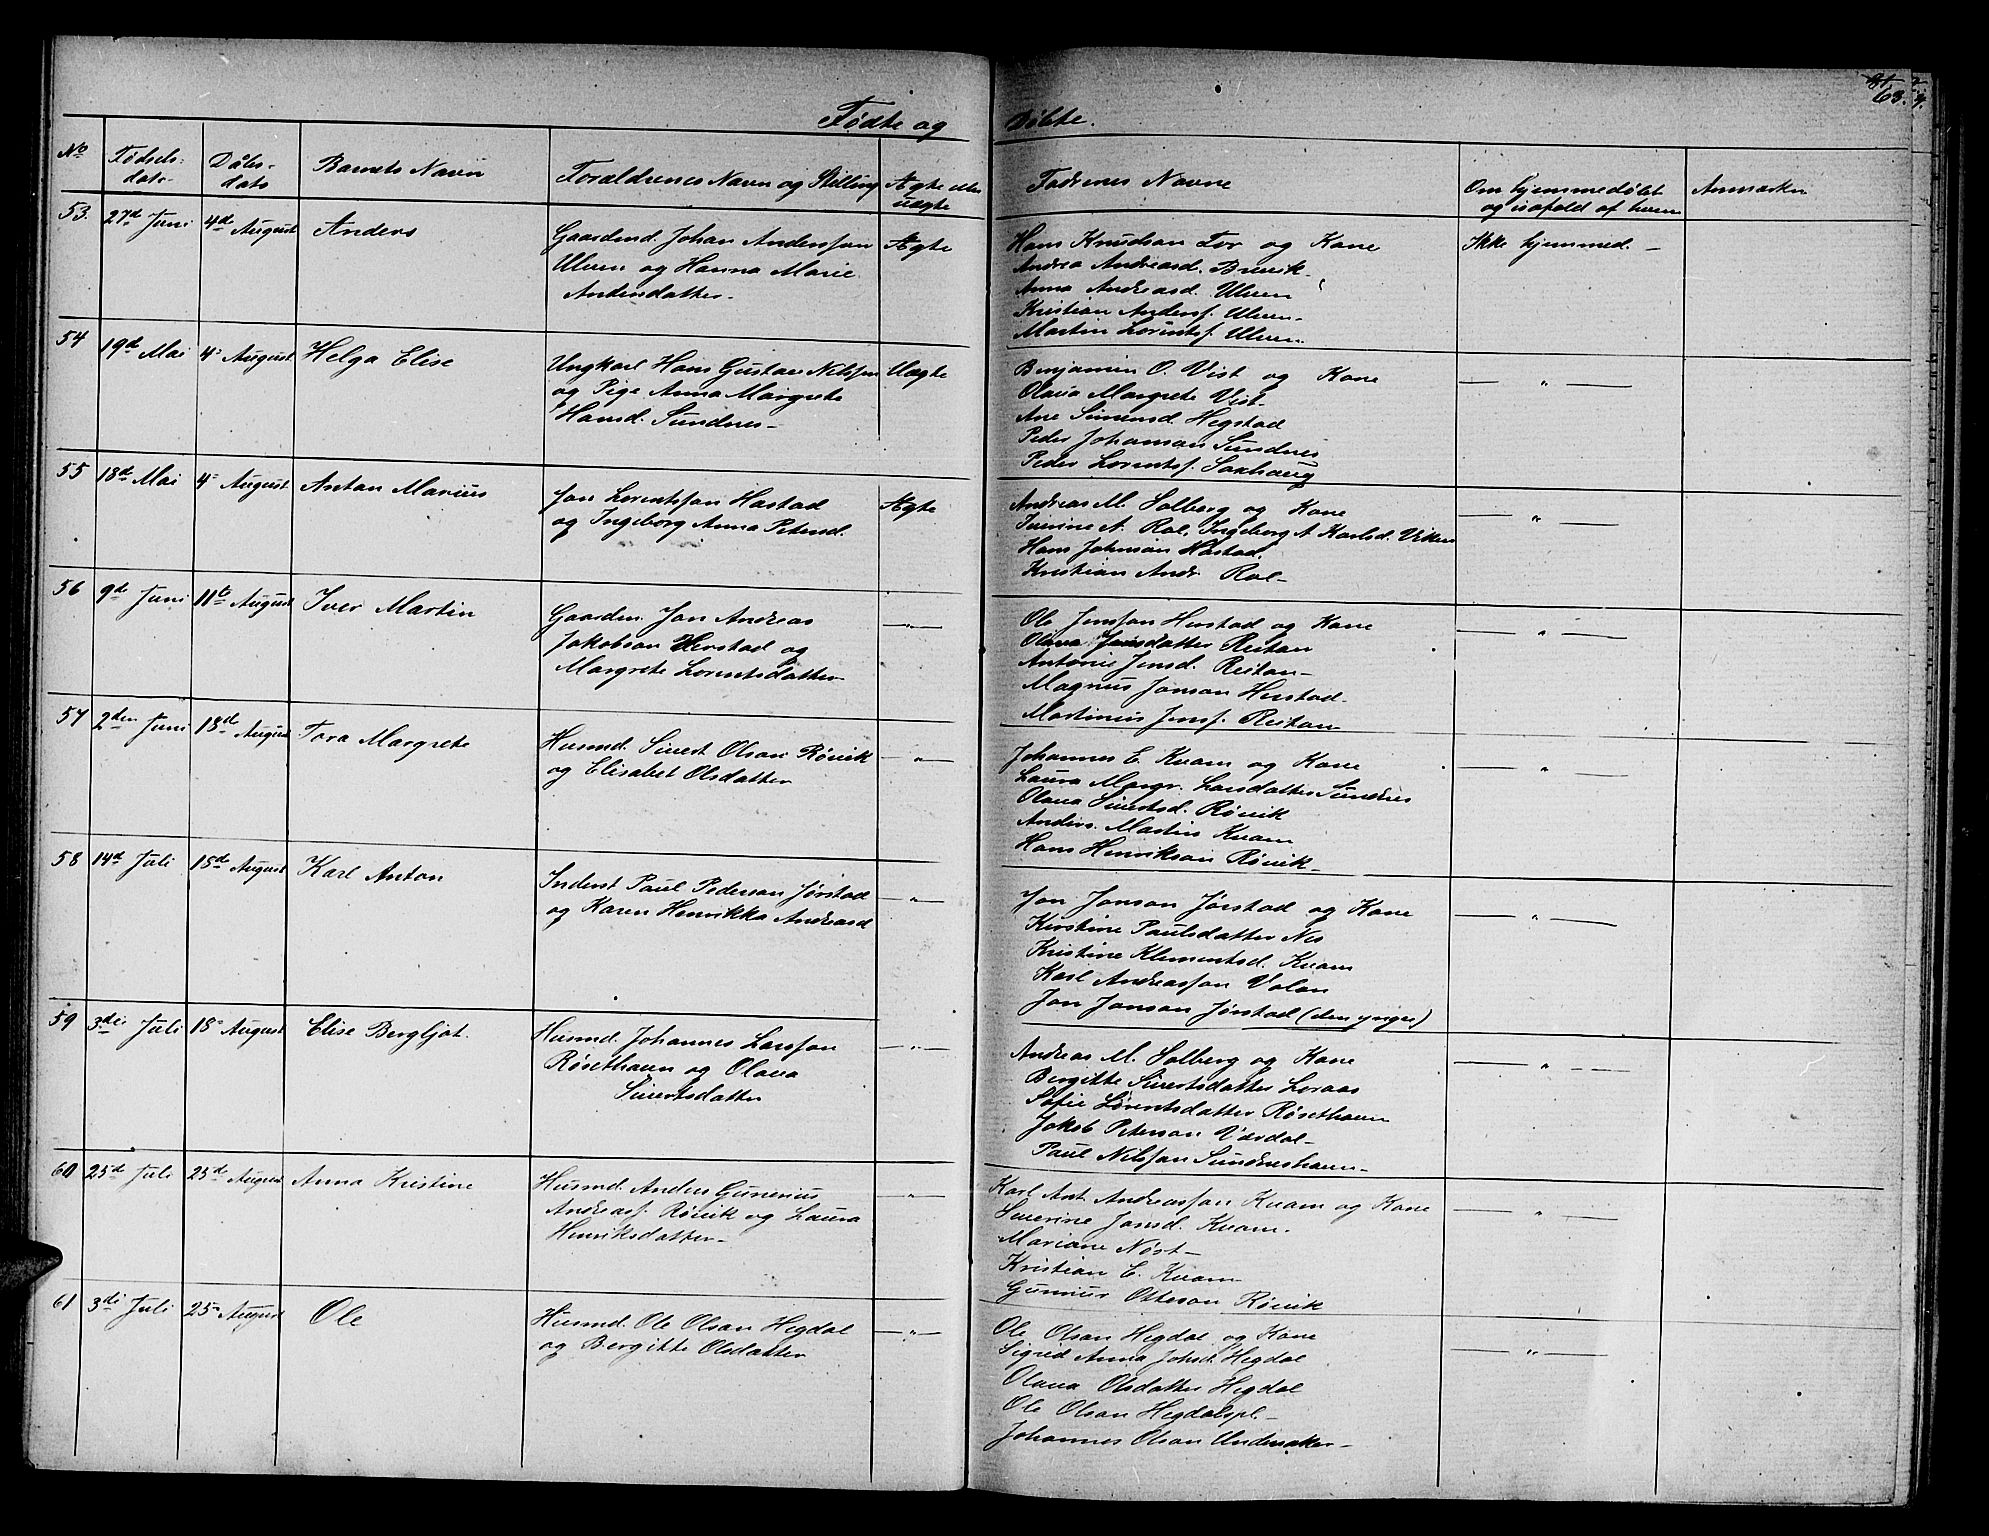 63.
Fødte og Døbte.
No
Fødsels-
dato
Dåbs-
dato
Barnets Navn
Forældrenes Navn og Stilling
Ægte eller
uægte
Faddernes Navne
Om hjemmedøbt
og isåfald af hvem
Anmærkn
53. 27de Juni 4de August Anders
Gaardmd. Johan Andersson
Ulven og Hanna Marie
Andersdatter-
Ægte
Hans Knudson For og Kone
Andrea Andreasd. Breivik-
Anna Andreasd. Ulven
Kristian Andersf. Ulven-
Martin Lorentsf. Ulven
Ikke hjemmed. -
54 19de Mai 4- August Helga Elise
Ungkarl Hans Gustav Nilsson
og Pige Anna Margrete
Hansd. Sundnes-
Uægte
Benjamin O. Vist og Kone
Olava Margrete Vist-
Ane Simonsd Hegstad
Peder Johanson Sundnes
Peder Lorentsf. Saxhaug
— " —
55 18de Mai 4- August Anton Marius
Jon Lorentsson Hastad
og Ingeborg Anna Petersd.
Ægte
Andreas M. Solberg og Kone
A. Rol, Ingeborg A Karlsd. Viken
Hans Johnson Hastad,
Kristian Andr. Rol-
— " —
56 9de Juni 11te August Iver Martin
Gaardm. Jon Andreas
Jakobson Herstad og
Margrete Lorentsdatter
— " —
Ole Jensson Herstad og Kone
Olava Jensdatter Reitan
Antonie Jensd. Reitan-
Magnus Jonson Herstad-
Martinus Jensf. Reitan
— " —
57 2den Juni 18de August Tora Margrete
Husmd. Sivert Olson Røvik
og Elisabet Olsdatter
— " —
Johannes E. Kvam og Kone
Laura Margr. Larsdatter Sundnes
Olava Sivertsd. Røvik
Anders Martin Kvam
Hans Henrikson Røvik-
— " —
58 14de Juli 15de August Karl Anton
Inderst Paul Pederson Jørstad
og Karen Henrikka Andreasd
— " —
Jon Jonson Jørstad og Kone
Kirstine Paulsdatter Nes
Kristine Klementsd. Kvam
Karl Andreasson Volan
Jon Jonson Jørstad (den yngre)
— " —
59 3die Juli 18- August Elise Bergljot.
Husmd. Johannes Larsson
Røsethaven og Olava
Sivertsdatter
— " —
Andreas M. Solberg og Kone
Bergitte Sivertsdatter Loraas
Sofie Lorentsdatter Røsethaven
Jakob Peterson Værdal-
Paul Nilsson Sundneshaven-
— " —
60 25de Juli 25de August Anna Kristine
Husmd. Anders Gunerius
Andreasf. Røvik og Laura
Henriksdatter-
— " —
Karl Ant. Andreasson Kvam og Kone
Severine Jonsd. Kvam.
Mariane Nøst-
Kristian E. Kvam
Gunerius Otteson Røvik
— " —
61 3die Juli 25- August Ole
Husmd. Ole Olson Hegdal
og Bergitte Olsdatter
— " —
Ole Olson Hegdal og Kone
Sigrid Anna Johsd. Hegdal
Olava Olsdatter Hegdal
Ole Olson Hegdalspl.-
Johannes Olson Undersaker-
— " —